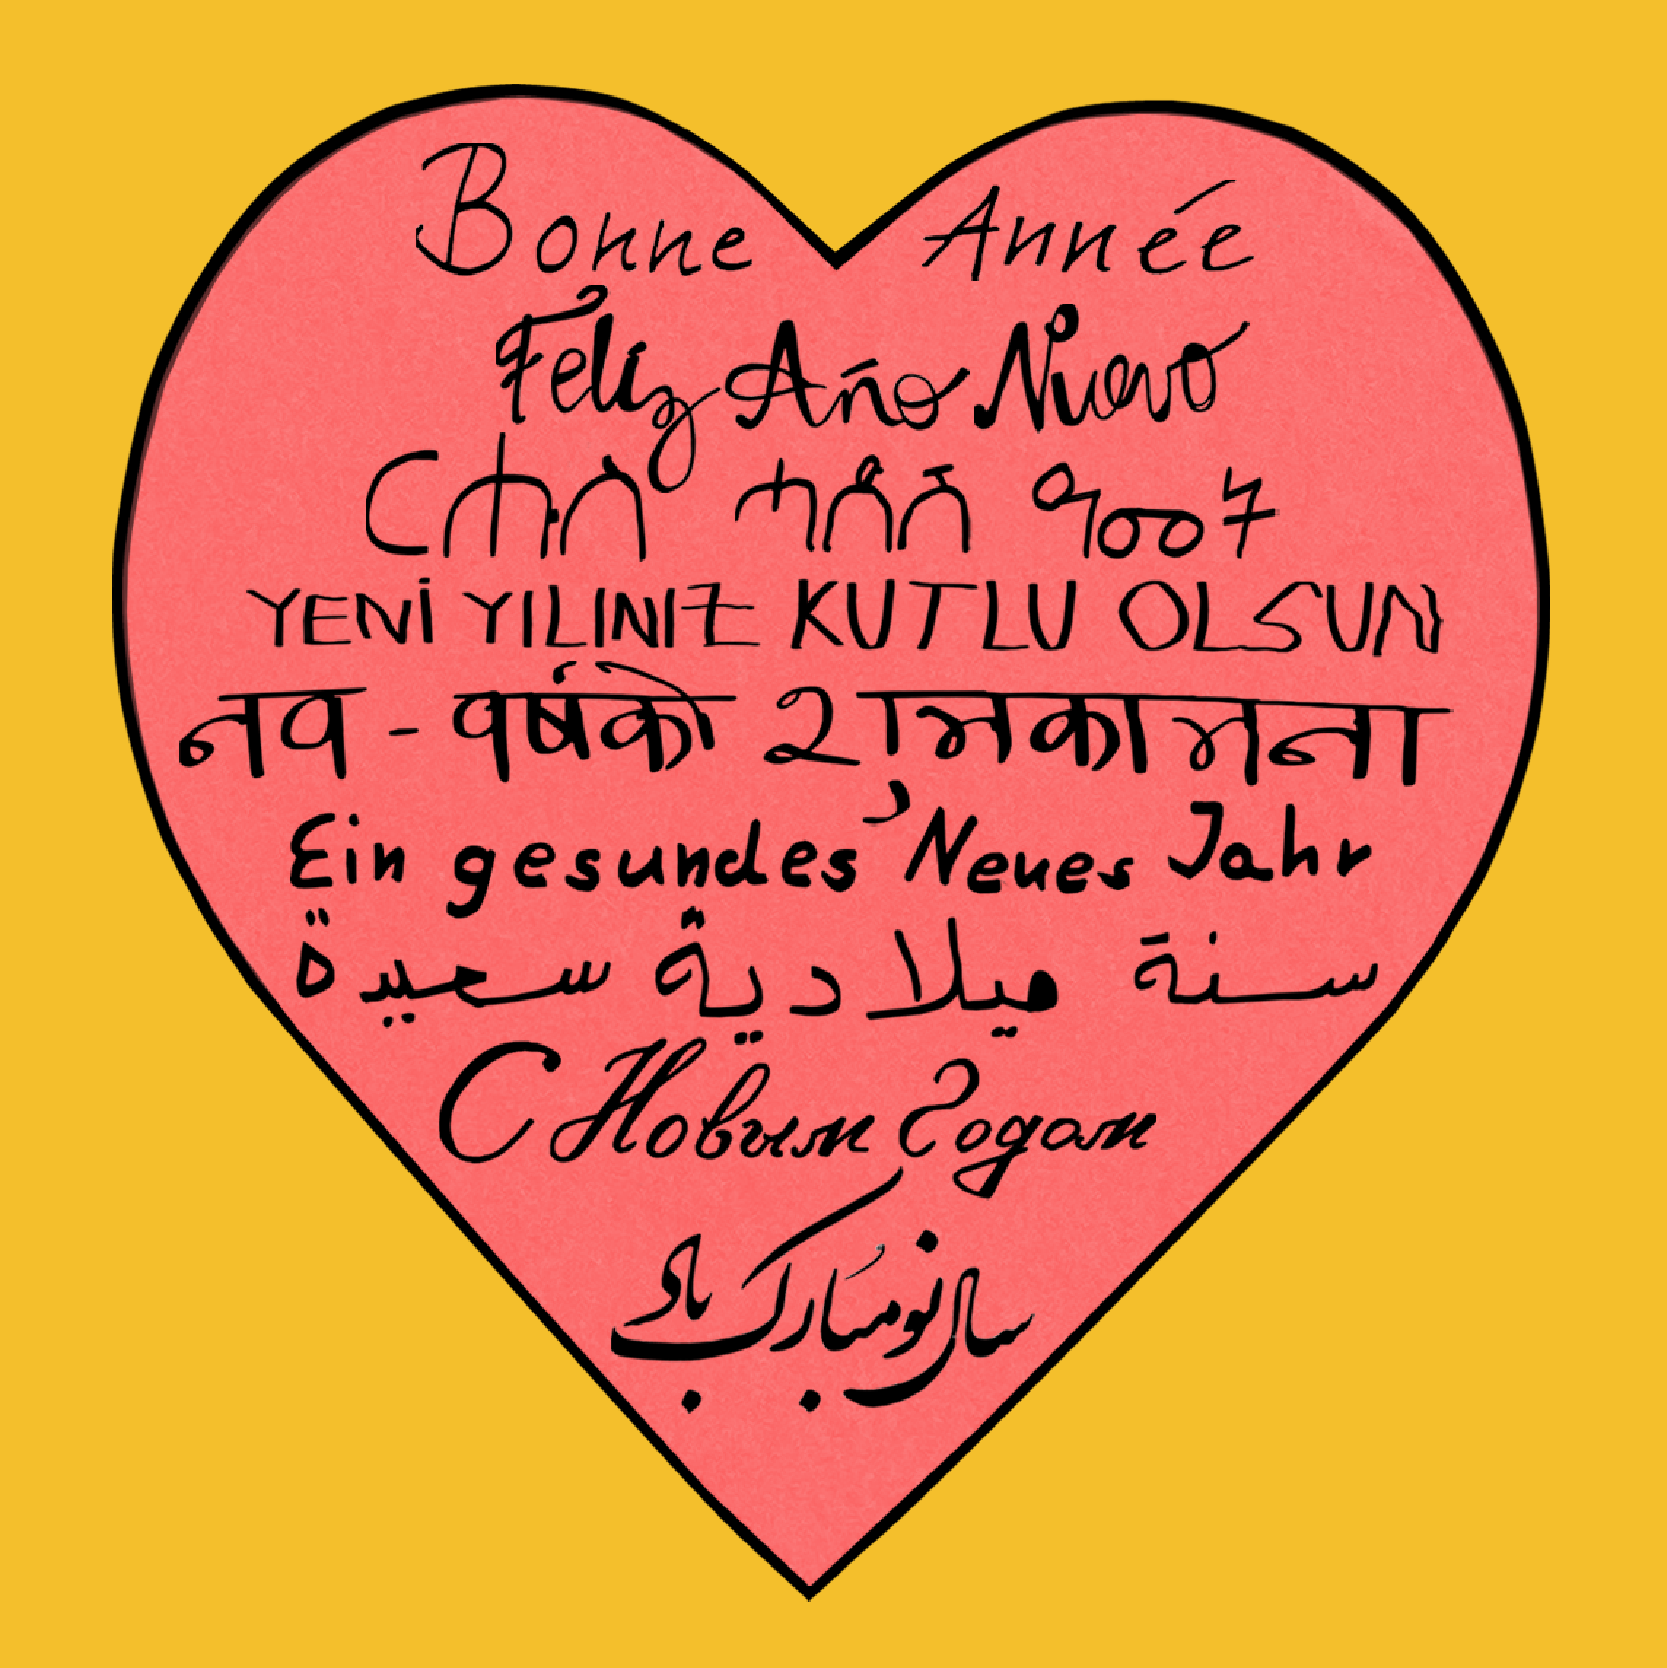 Bonne Année
Feliz Año Nuevo
ርሑስ ሓድሽ ዓመት
YENİ YILINIZ KUTLU OLSUN
नव - वर्षको शुभकामना
Ein gesundes Neues Jahr
سنة ميلادية سعيدة
С Новым Годом
سال نو مُبارک باد